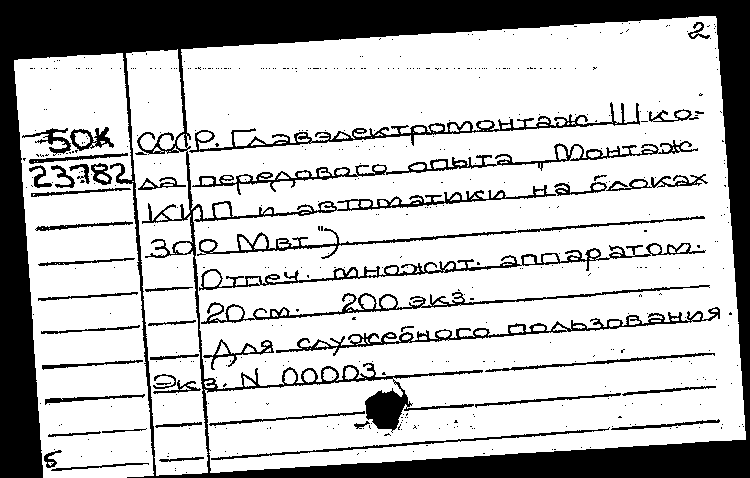 2
50К СССР. Главэлектромонтаж. Шко-
23782 ла передового опыта „Монтаж
КИП и автоматики на блоках
300 Мвт")
Отпеч. множит. аппаратом.
20 см. 200 экз.
Для служебного пользования.
Экз. N 00003.
5